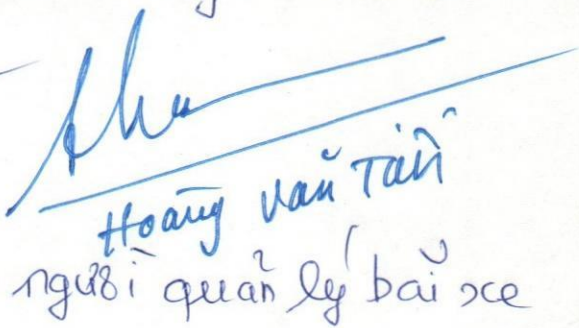 Hoàng Văn Tài
người quản lý bãi xe